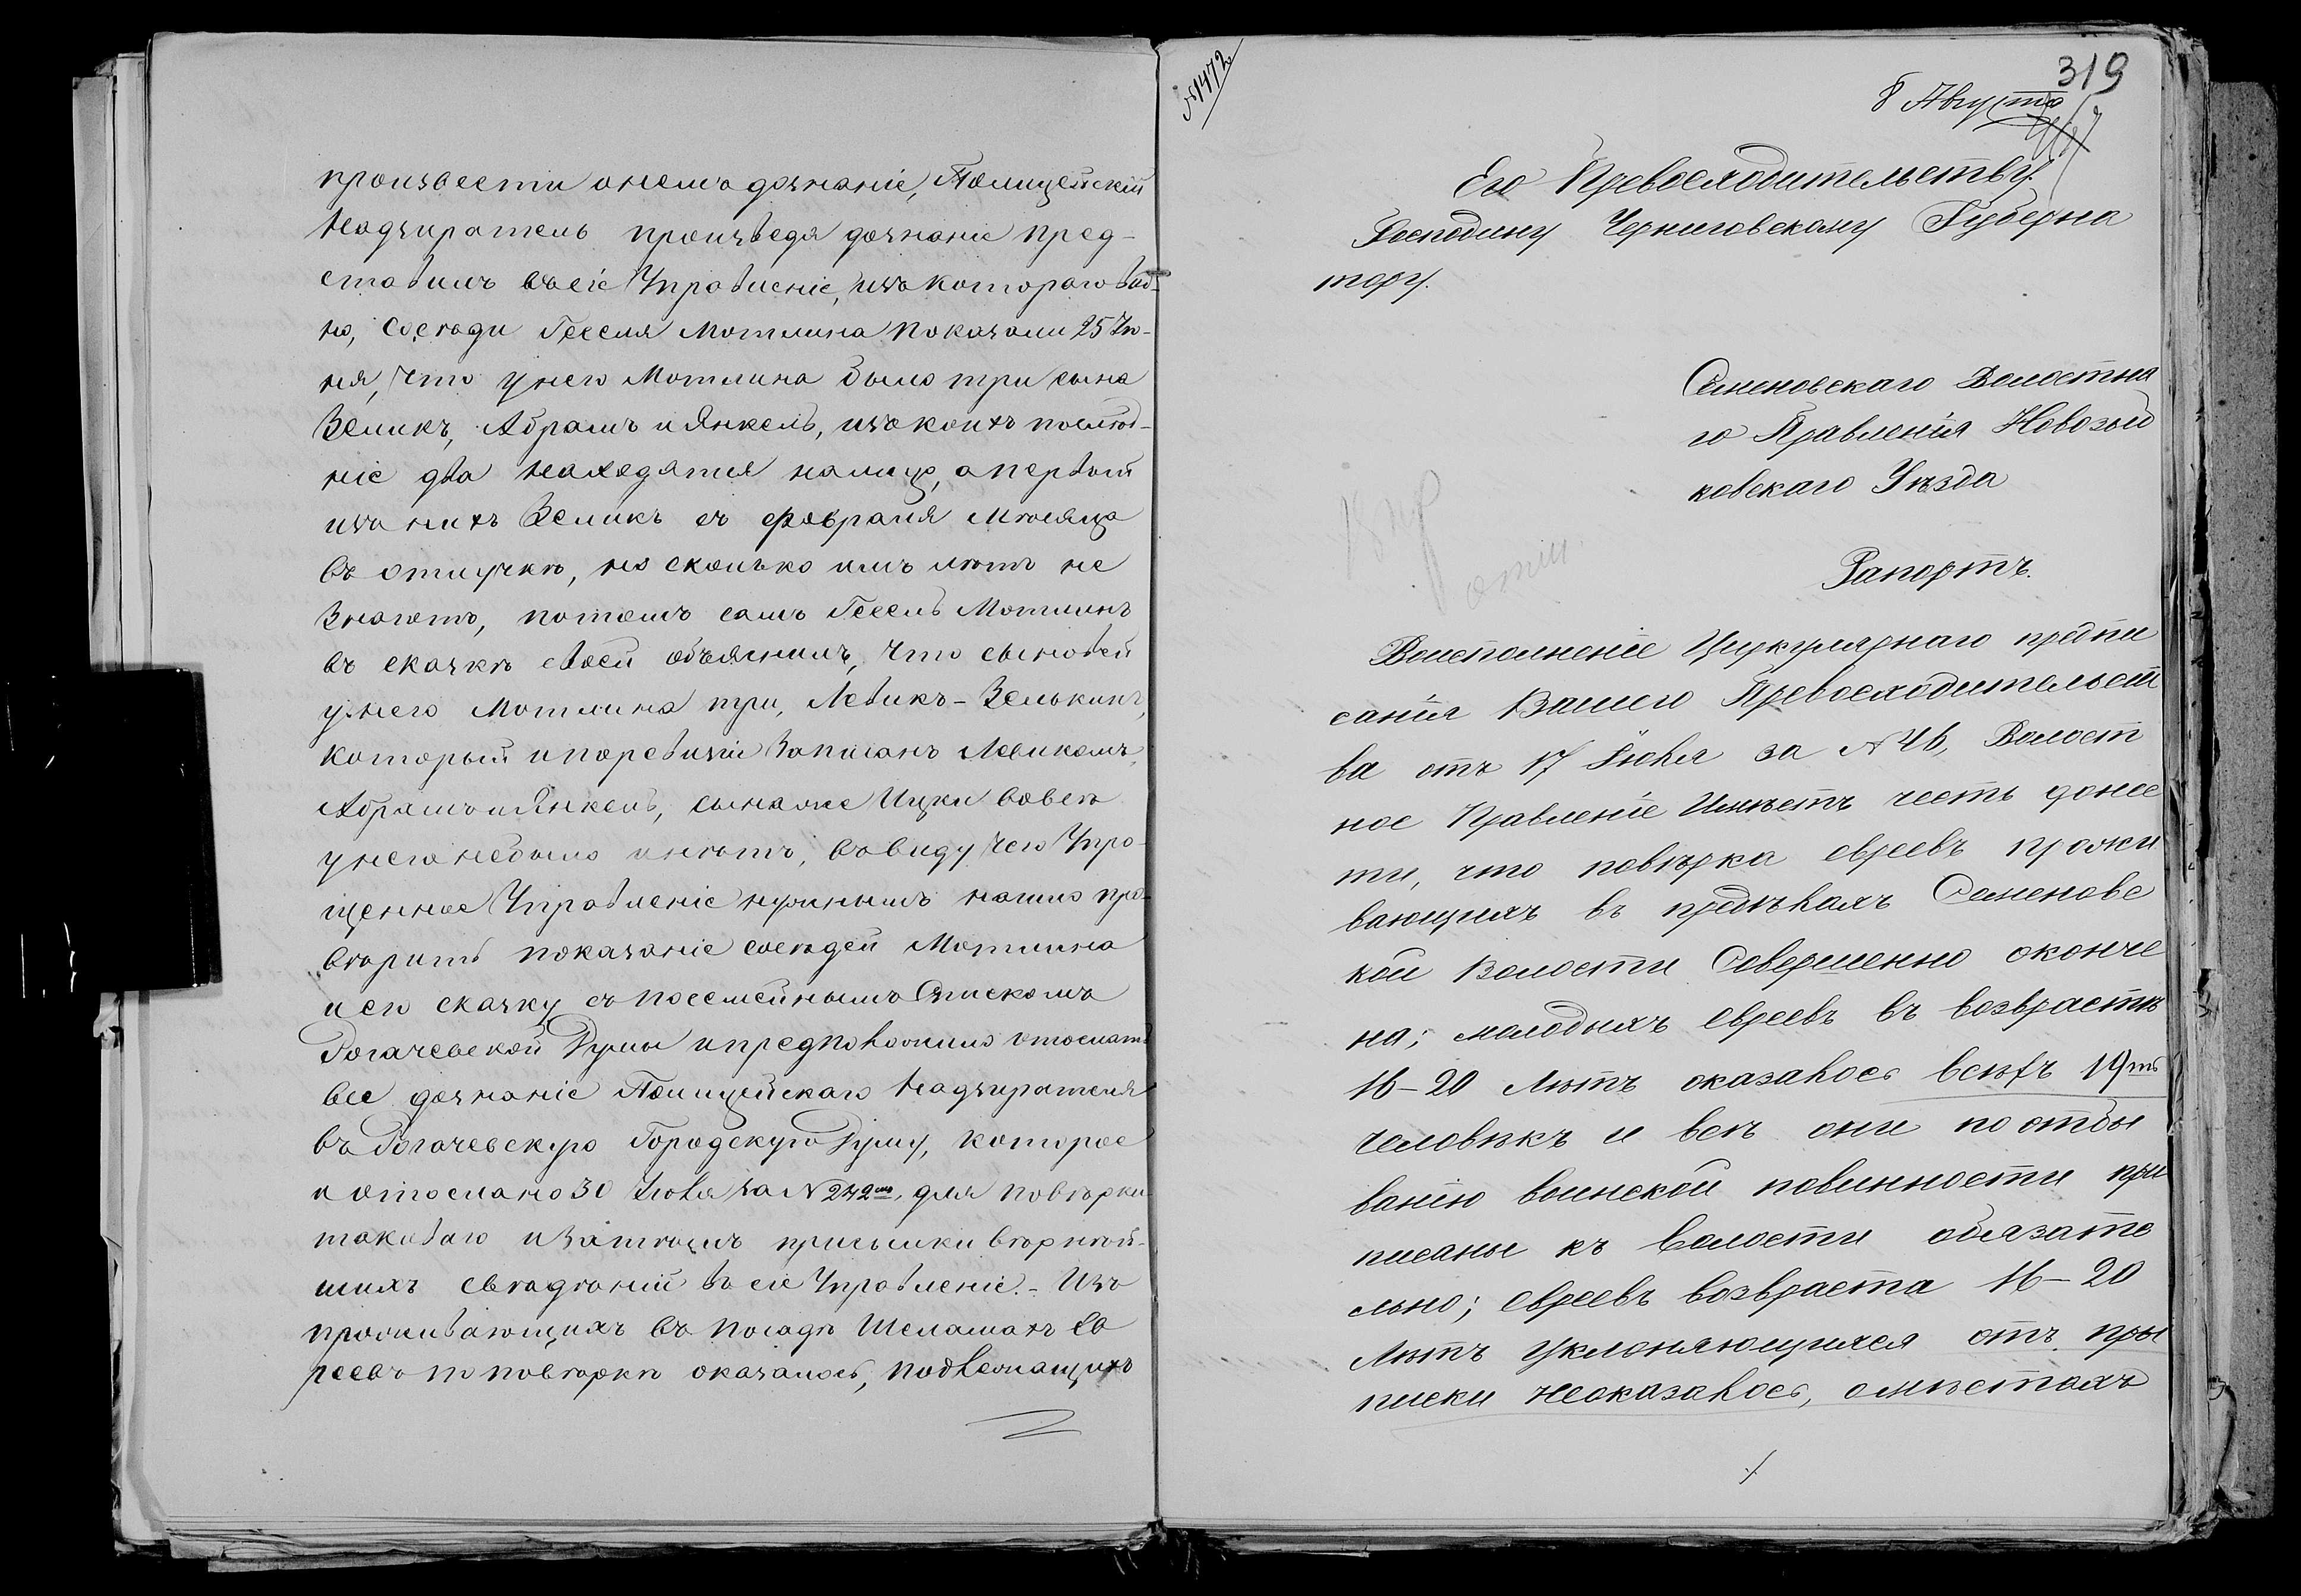 произвести о немъ дознаніе, Полицейскій
Надзиратель произведя дознаніе пред-
ставилъ въ сіе Управленіе, изъ котораго вид-
но, соседи Гесселя Мотлина показали 25 Ію-
ня, что у него Мотлина было три сына
Зеликъ, Абрамъ и Янкель, изъ коихъ послѣд-
ніе два находятся налицо, а первый
изъ нихъ Зеликъ съ февраля месяца
въ отлучкѣ, но сколько имъ лѣтъ не
знаютъ, потомъ самъ Гессель Мотлинъ
въ сказкѣ своей объяснилъ, что сыновей
у него Мотлина три, Левикъ-Зелькинъ,
который и по ревизіи записанъ Левикомъ,
Абрамъ и Янкель, сына же Ицки вовсе
у него не было и нѣтъ, въ виду чего Упро-
щенное Управленіе нужнымъ нашло про-
вѣрить показаніе соседей Мотлина
и его сказку съ посемейнымъ Спискомъ
Рогачевской Думы и предположило отослать
все дознаніе Полицейскаго Надзирателя
въ Рогачевскую Городскую Думу, которое
и отослано 30 Іюля за № 242мъ, для повѣрки
таковаго и затѣмъ присылки вѣрнѣй-
шихъ свѣдѣній въ сіе Управленіе. - Изъ
проживающихъ въ посадѣ Шеламахъ ев
реевъ по повѣркѣ оказалось, подлежащихъ
№ 1472
319
8 Августа
Его Превосходительству
Господину Черниговскому Губерна
тору.
Семеновскаго Волостна
го Правленія Новозыб
ковскаго Уѣзда
Рапортъ.
Воисполненіе Циркулярнаго предпи
санія Вашего Превосходительст
ва отъ 17 Іюля за № 46, Волост
ное Правленіе Имѣетъ честь донес
ти, что повѣрка евреевъ прожи
вающихъ въ предѣлахъ Семеновс
кой Волости Совершенно окончe
на; молодыхъ евреевъ въ возврастѣ
16-20 Лѣтъ оказалось всѣхъ 19ть
человѣкъ и всѣ они по отбы
ванію воинской повинности при
писаны къ волости обязате
льно; евреевъ возвраста 16-20
Лѣтъ уклоняющихся отъ при
писки неоказалось, о мѣстахъ